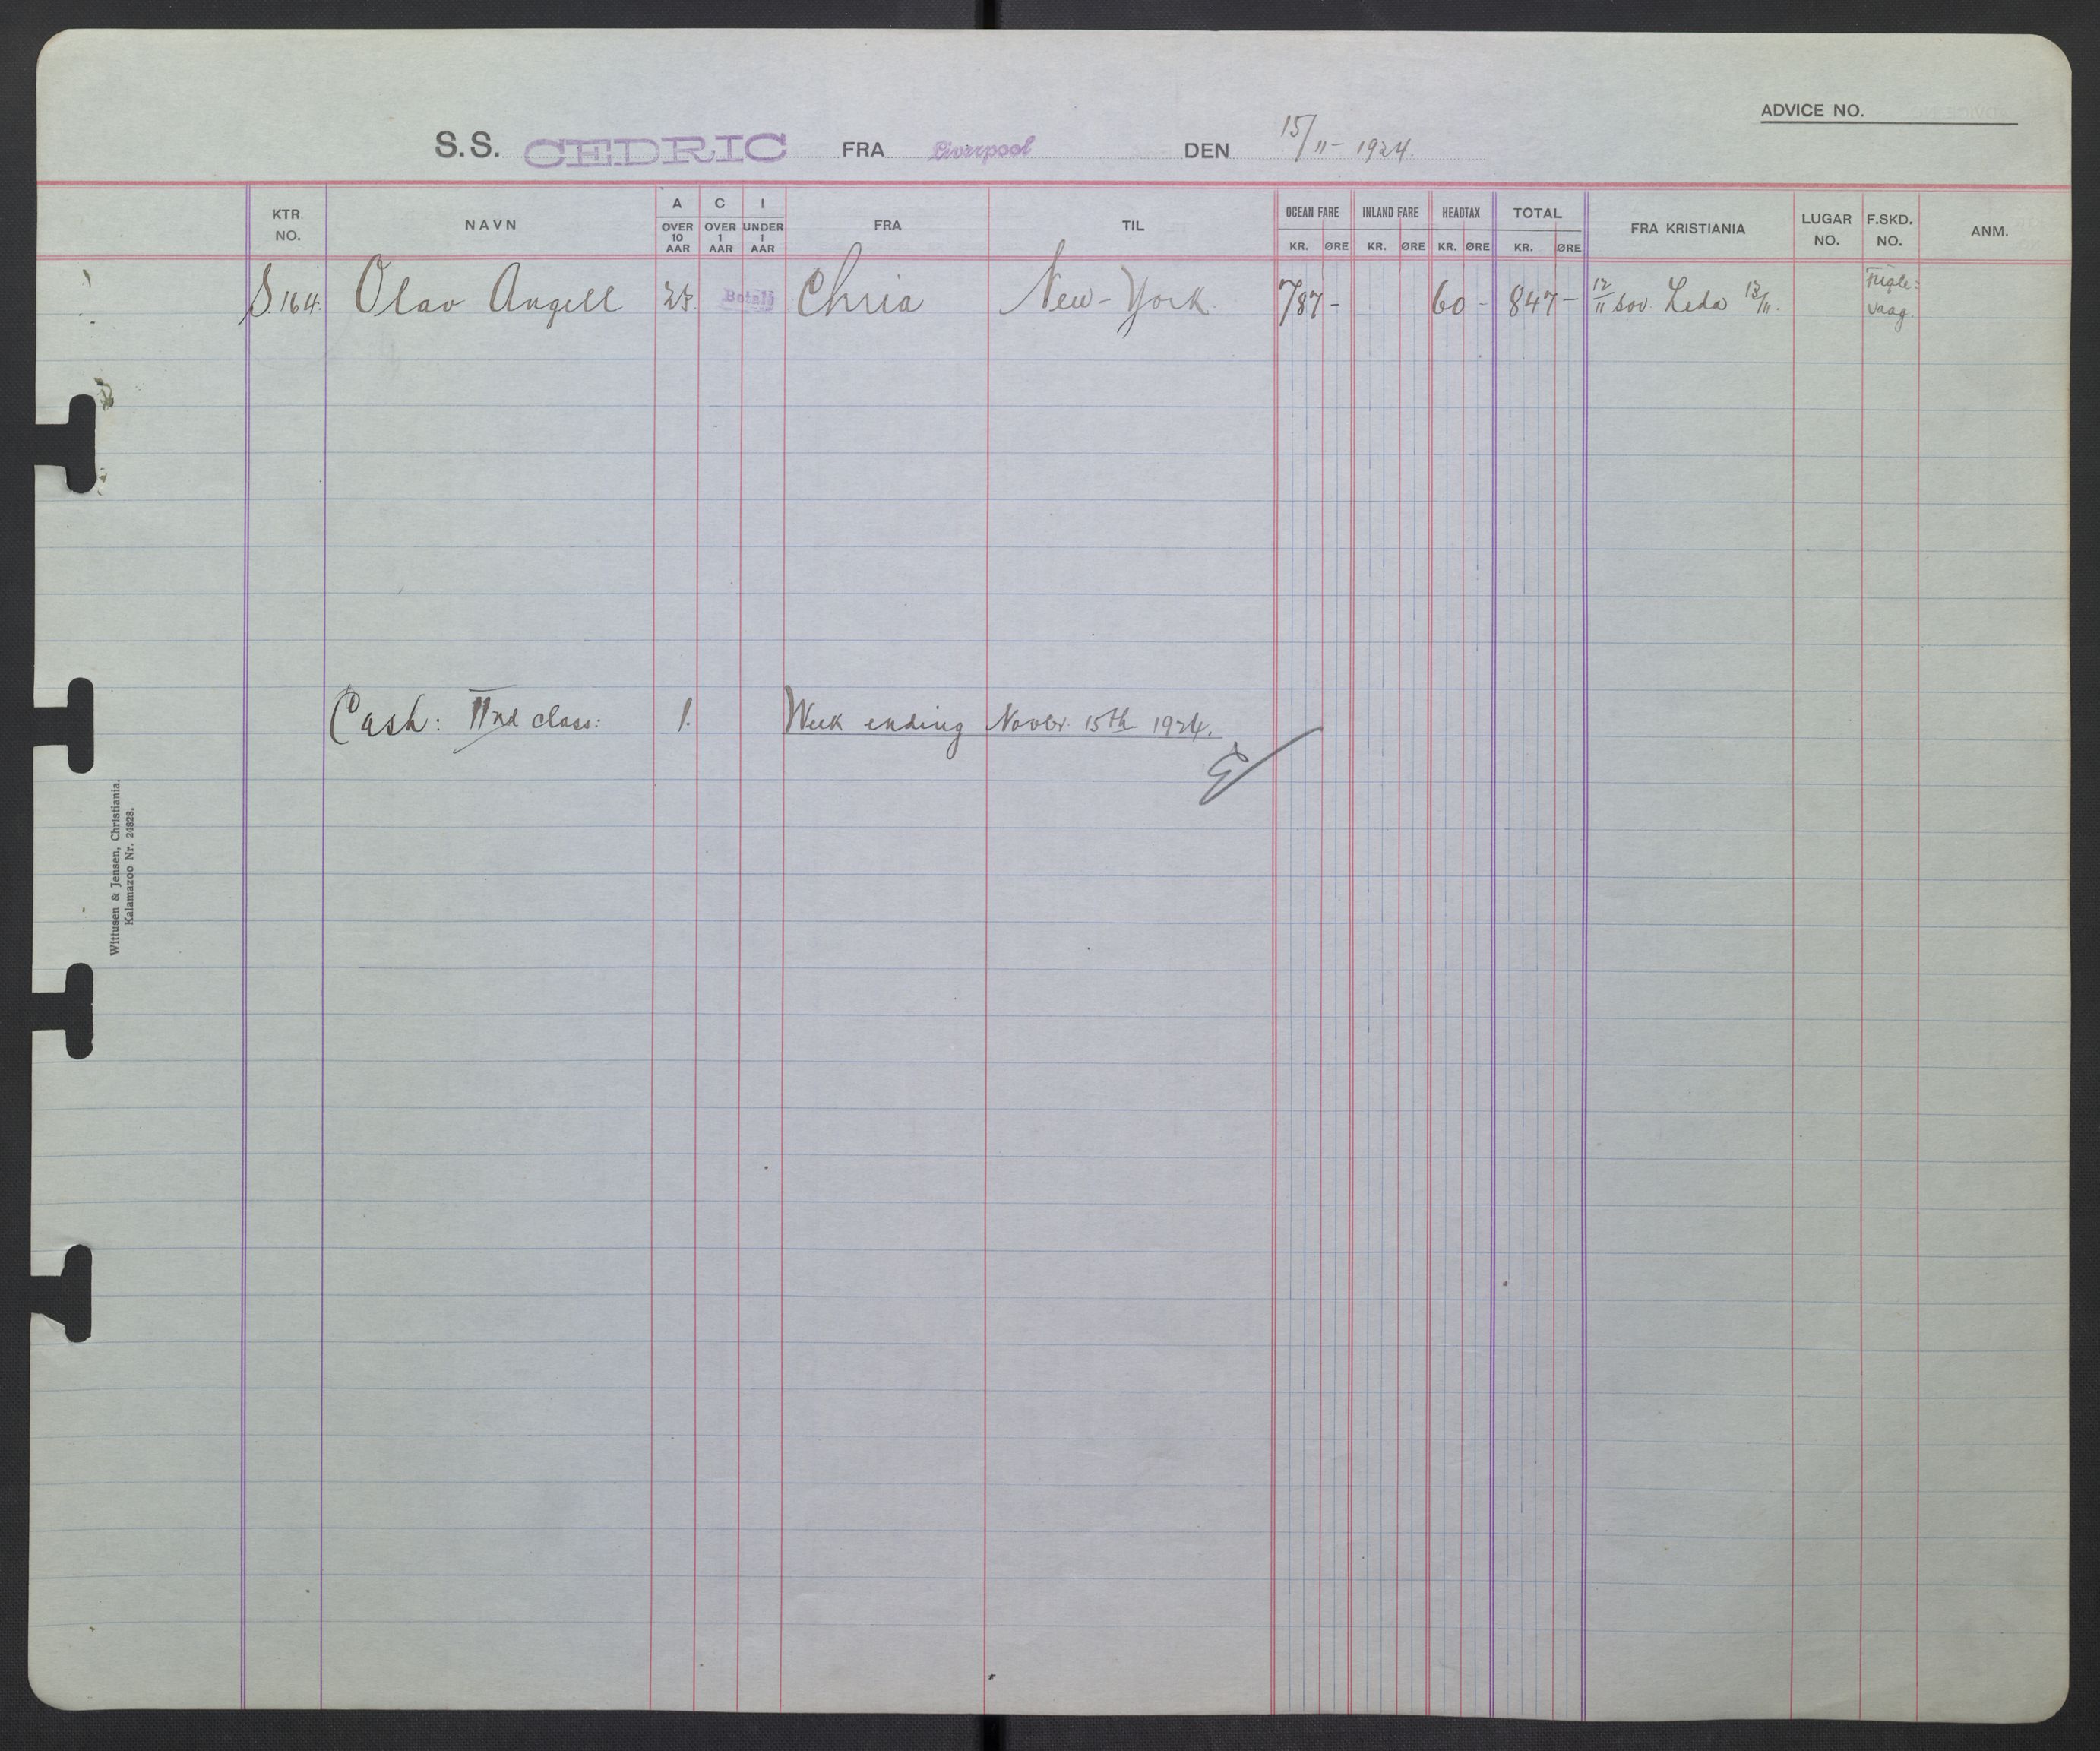 ADVICE NO.
S.S. CEDRIC FRA Liverpool DEN 15/11-1924.
KTR. NO. NAVN A OVER 10 AAR C OVER 1 AAR I UNDER 1 AAR FRA TIL OCEAN FARE KR. ØRE INLAND FARE KR. ØRE HEADTAX KR. ØRE TOTAL KR. ØRE FRA KRISTIANIA LUGAR NO. F.SKD. NO. ANM.
S.164. Olav Angell Betalt Chria New-York. 787- 60- 847- 12/11 sov. Leda 13/11. Fugle-
vaag.
Cash: IInd class: 1. Week ending Novbr. 15th 1924.
Wittusen & Jensen, Christiania.
Kalamazoo Nr. 24828.